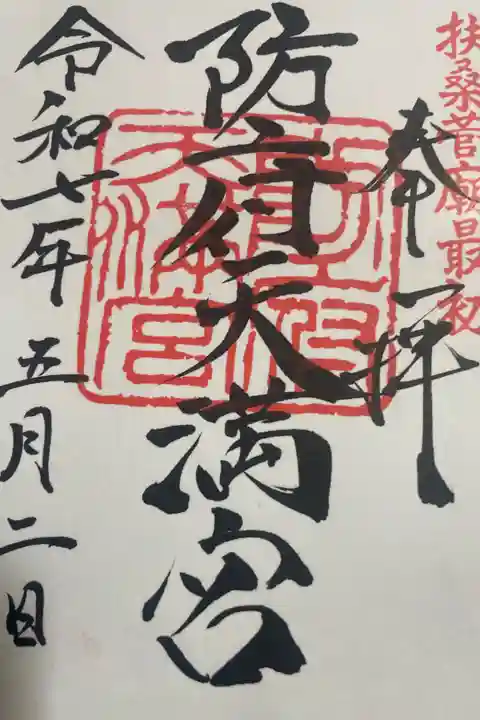 扶桑菅廟最初
奉拝
防府天満宮
防府天満宮
令和七年五月二日